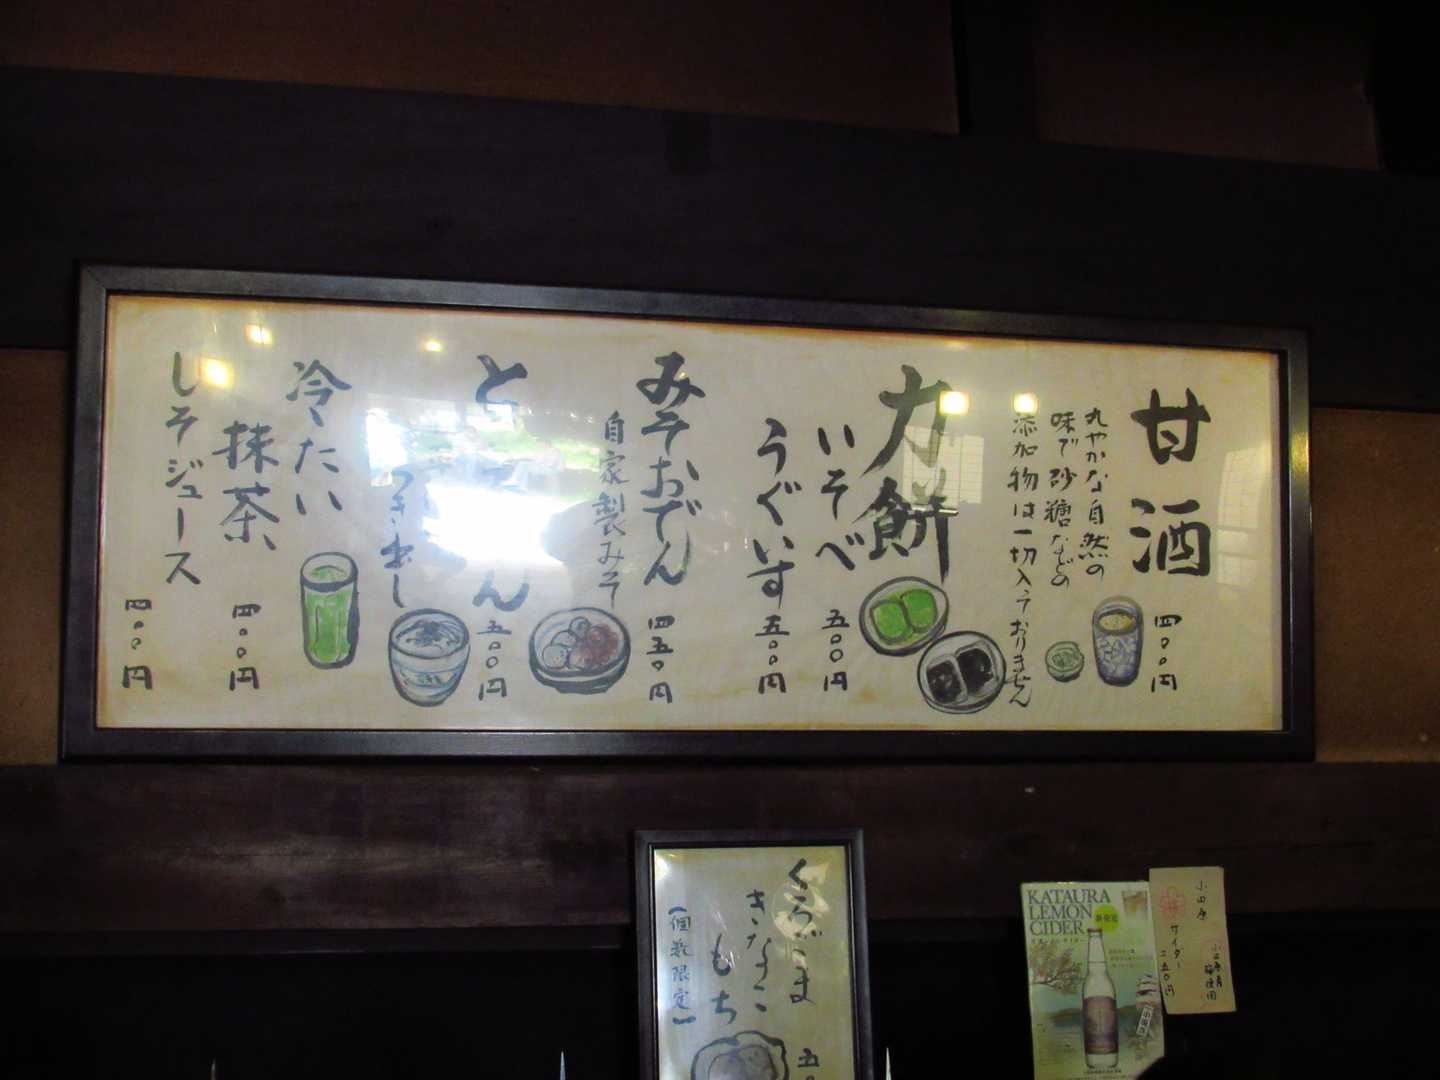 甘酒
四〇〇円
丸やかな自然の
味で砂糖などの
添加物は一切入っておりません
力餅
いそべ
五〇〇円
うぐいす
五〇〇円
みそおでん
四五〇円
自家製みそ
と
ん
五〇〇円
つき出し
冷たい
抹茶
四〇〇円
しそジュース
四〇〇円
くろごま
きなこ
もち
(個数限定)
五〇
KATAURA
LEMON
CIDER
新発売
小田原
サイダー
二五〇円
小田原産
梅使用